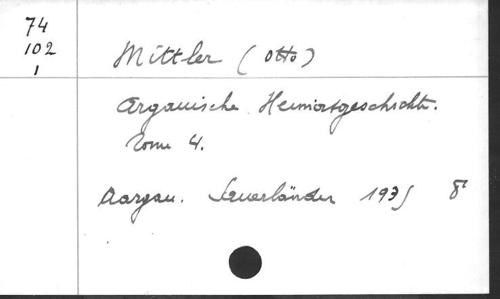 74
102
1
Mittler (Otto)
Argauische Heimatgeschichte.
Tome 4.
Aargau. Sauerländer 1935 8°